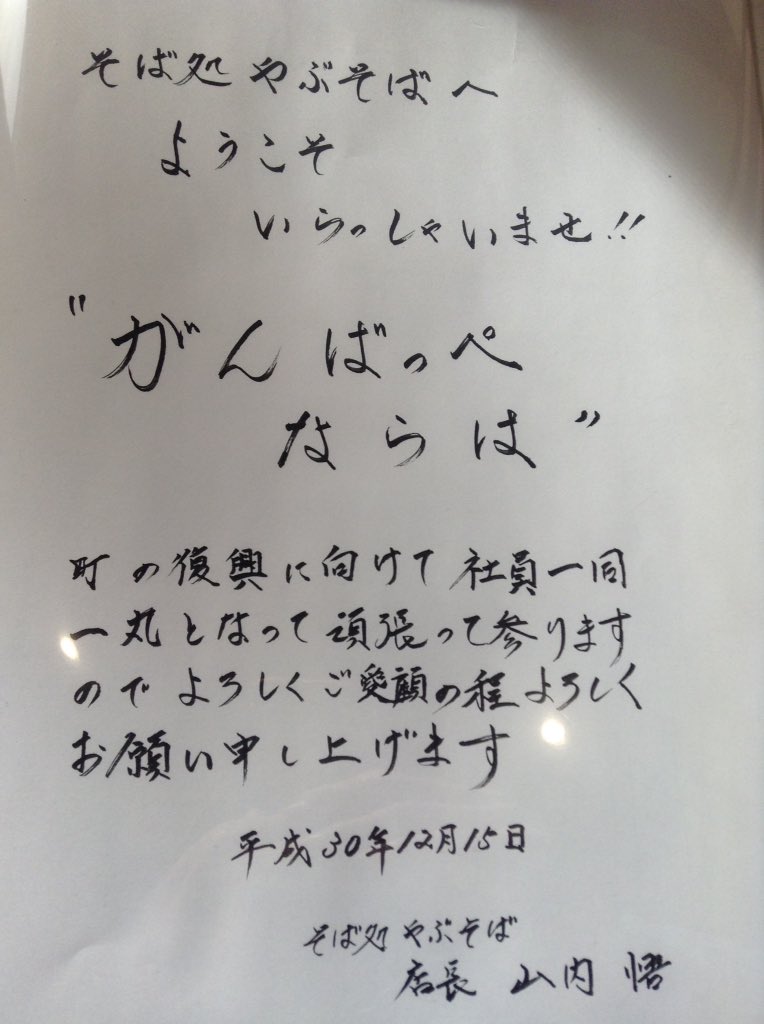 そば処 やぶそばへ
ようこそ
いらっしゃいませ!!
"がんばっぺ
ならは"
町の復興に向けて 社員一同
一丸となって頑張って参ります
のでよろしくご愛顧の程よろしく
お願い申し上げます
平成30年12月15日
そば処 やぶそば
店長 山内 悟